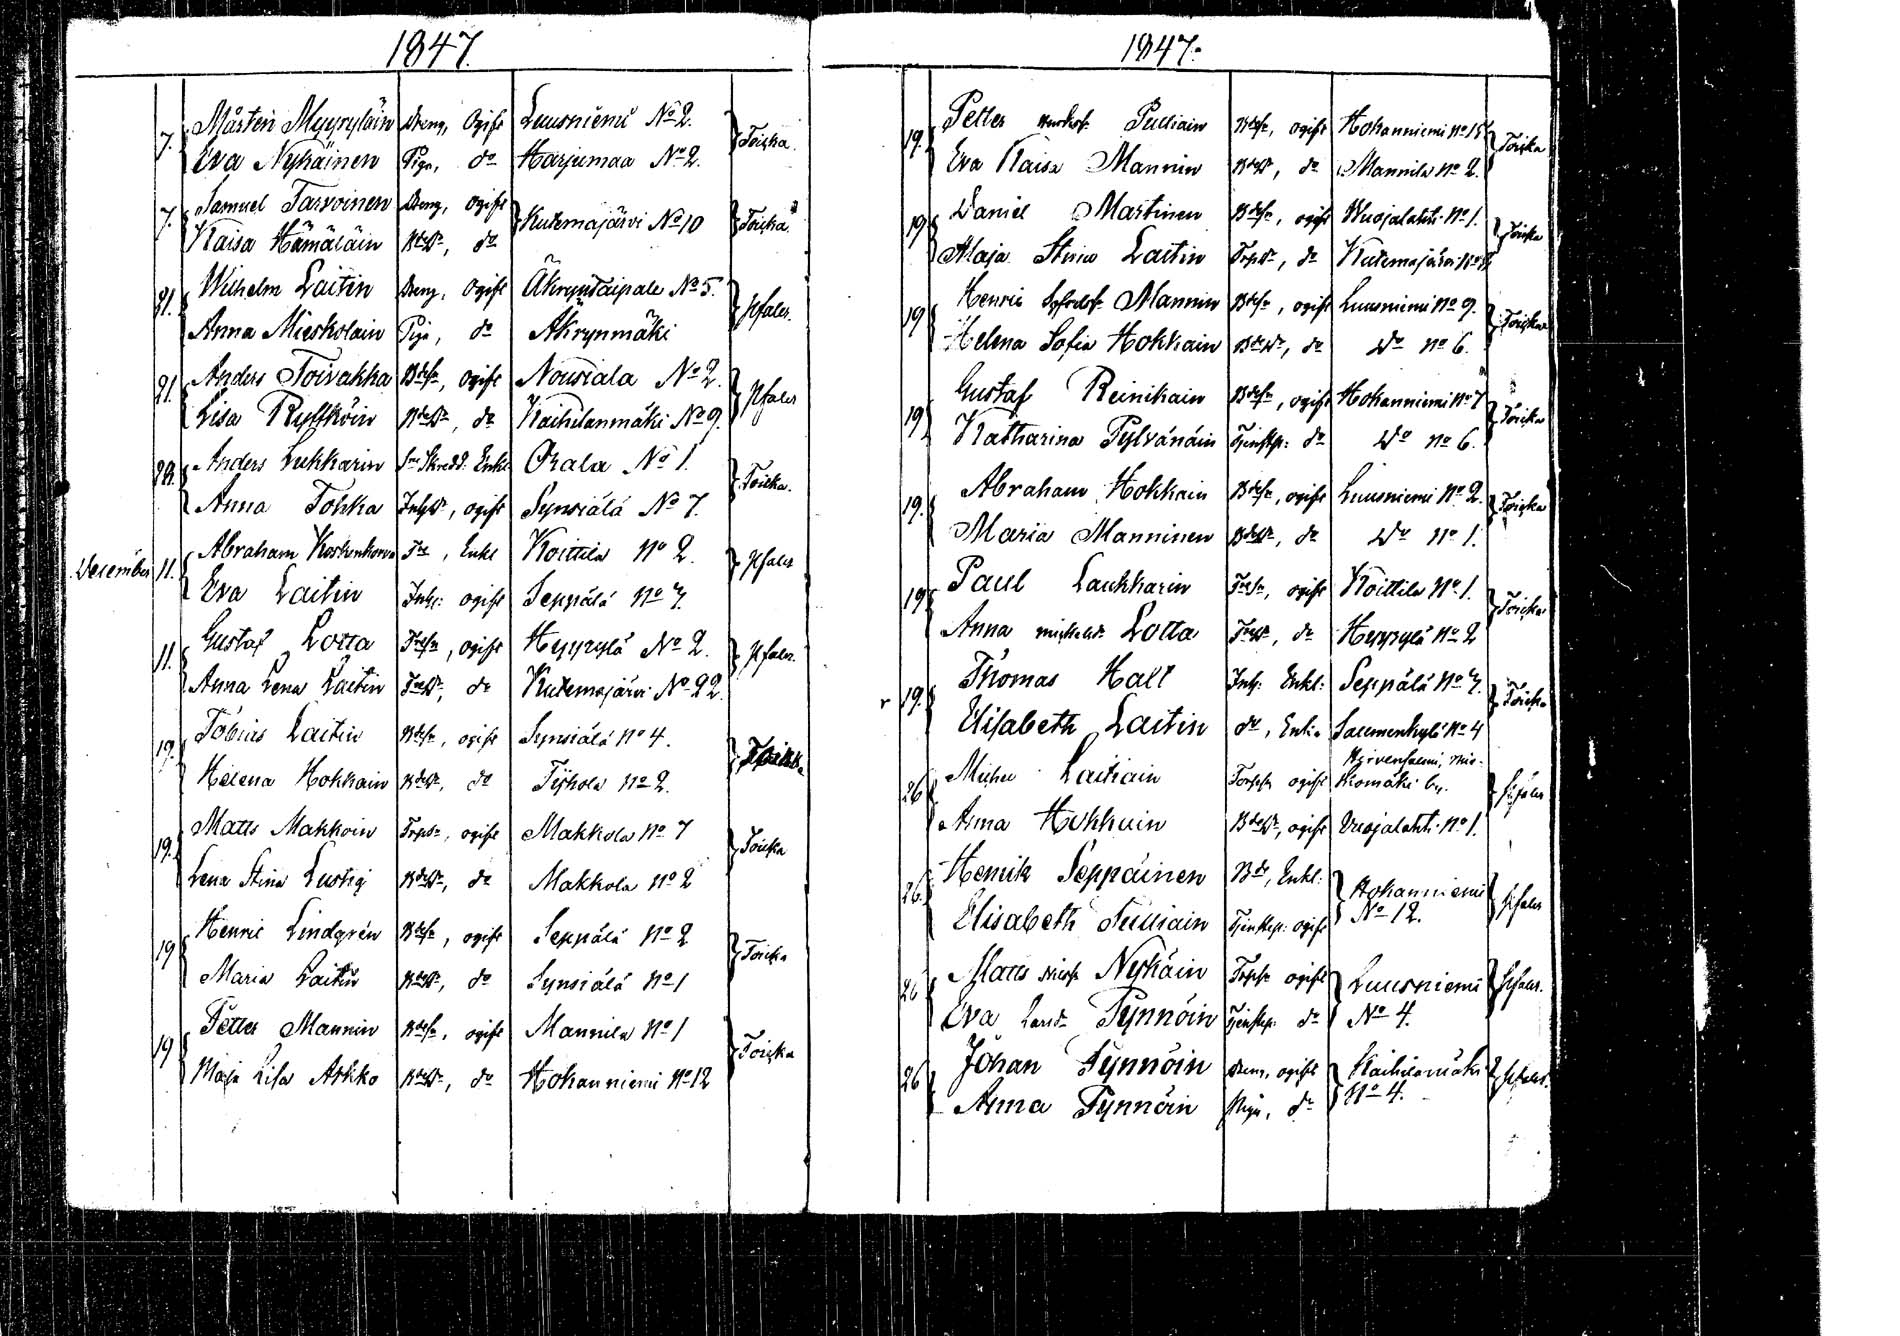 1847.
7. Mårten Myyryläin Dreng, Ogift Luusniemi No 2. Toiska.
Eva Nykäinen Piga, do Harjumaa No 2.
7. Samuel Tarvoinen Dreng, ogift Kutemajärvi No 10 Toiska
Kaisa Hämäläin BdeDr, do
21. Wilhelm Laitin Dreng, Ogift Äkryntaipale No 5. Pfaler.
Anna Mieskolain Piga, do Äkrynmäki
21. Anders Toivakka Bdesn, ogift Nousiala No 2. Pfaler
Lisa BdeDr, do Kaihilanmäki No 9.
Anders Lukkarin Enkl. Orala No 1. Toiska.
Anna Tohka InhDr, ogift Synsiälä No 7.
December 11. Abraham Enkl Koittila No 2. Pfaler
Eva Laitin Inh: ogift Seppälä No 7.
11. Gustaf Lotta ogift Heyrylä No 2. Pfaler.
Anna Lena Laitin do Kutemajärvi No 22.
19. Tobias Laitin Bdesn, ogift Synsiälä No 4. Toiska
Helena Hokkain BdeDr, do Tyhola No 2.
19. Matts Makkoin ogift Makkola No 7 Toiska
Lena Stina Lustig BdeDr, do Makkola No 2
19 Henric Lindgrén Bdesn, ogift Seppälä No 2 Toiska
Maria Laitin BdeDr, do Synsiälä No 1
19 Petter Mannin Bdesn, ogift Mannila No 1 Toiska
Maja Lisa Arkko BdeDr, do Hokanniemi No 12
1847.
19. Petter Pulliain Bdesn, ogift Hokanniemi No 15 Toiska
Eva Kaisa Mannin BdeDr, do Mannila No 2.
19 Daniel Martinen Bdesn, ogift Wuojalahti No 1. Toiska
Maja Stina Laitin TrpDr, do Kutemajärvi No
19 Henric Mannin Bdesn, ogift Luusniemi No 9. Toiska
Helena Sofia Hokkain BdeDr, do Do No 6.
19 Gustaf Reinikain Bdesn, ogift Hokanniemi No 7 Toiska
Katharina Pylvänäin Tjenstep: do Do No 6.
19. Abraham Hokkain Bdesn, ogift Luusniemi No 2. Toiska
Maria Manninen BdeDr, do Do No 1.
19 Paul Laukkarin ogift Koittila No 1. Toiska
Anna Lotta do Heyrylä No 2
19. Thomas Hall Inh: Enkl: Seppälä No 7. Toiska
Elisabeth Laitin do, Enka Salmenkylä No 4
26 Laitiain ogift Hirvensalmi, by. Pfaler
Anna Hokkain BdeDr, ogift Vuojalahti No 1.
26. Henrik Seppäinen Bde, Enkl: Hokanniemi Pfaler
Elisabeth Pulliain Tjenstep: ogift No 12.
26 Matts Nykäin ogift Luusniemi Pfaler.
Eva Tynnöin Tjenstep: do No 4.
26 Johan Tynnöin Dreng, ogift Kaihilamäki Pfaler.
Anna Tynnöin Piga, do No 4.